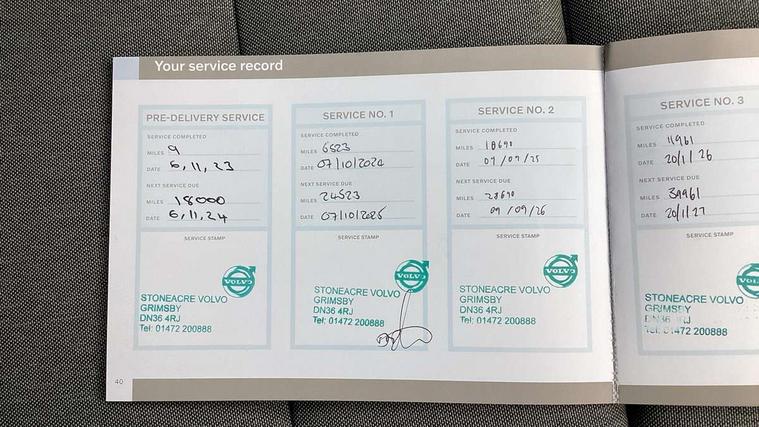 Your service record
PRE-DELIVERY SERVICE
SERVICE COMPLETED
MILES 9
DATE 6,11,23
NEXT SERVICE DUE
MILES 18000
DATE 6,11,24
SERVICE STAMP
VOLVO
STONEACRE VOLVO
GRIMSBY
DN36 4RJ
Tel: 01472 200888
SERVICE NO. 1
SERVICE COMPLETED
MILES 6523
DATE 07/10/2024
NEXT SERVICE DUE
MILES 24523
DATE 07/10/2025
SERVICE STAMP
VOLVO
STONEACRE VOLVO
GRIMSBY
DN36 4RJ
Tel: 01472 200888
SERVICE NO. 2
SERVICE COMPLETED
MILES 10690
DATE 09/09/25
NEXT SERVICE DUE
MILES 28690
DATE 09/09/26
SERVICE STAMP
VOLVO
STONEACRE VOLVO
GRIMSBY
DN36 4RJ
Tel: 01472 200888
SERVICE NO. 3
SERVICE COMPLETED
MILES
DATE 20/1/26
NEXT SERVICE DUE
MILES
DATE 20/1/27
SERVICE STAMP
STONEACRE VOL
GRIMSBY
DN36 4RJ
Tel: 01472 200888
40